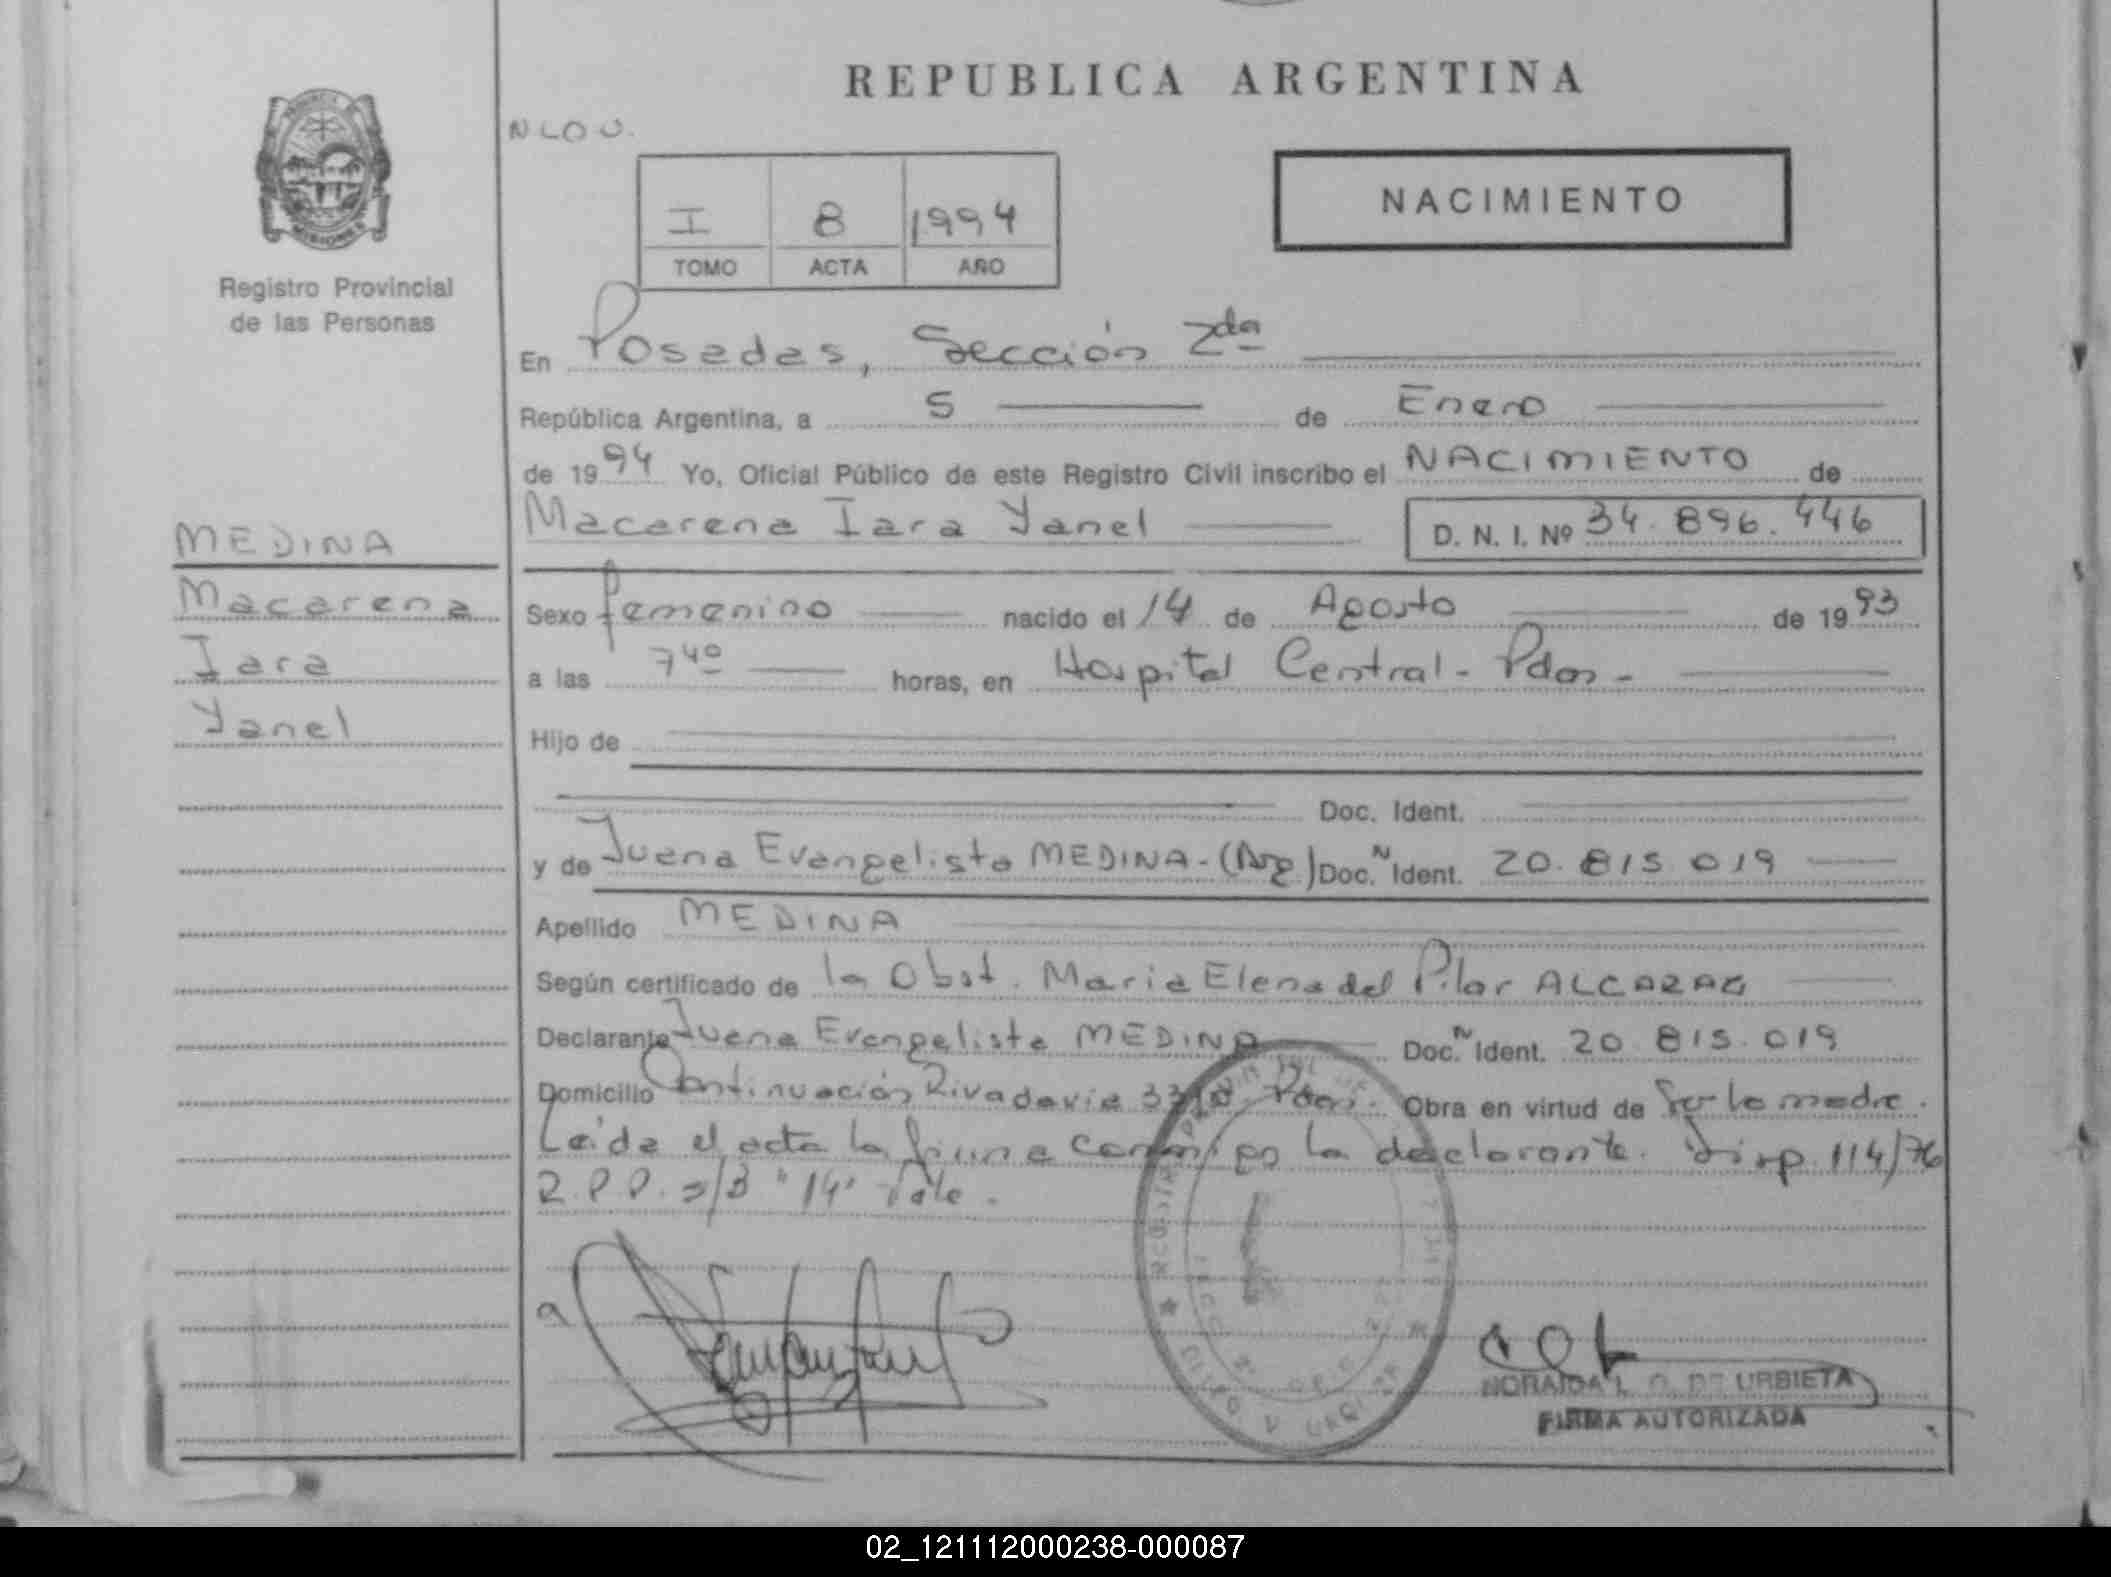 REPUBLICA ARGENTINA
N L O U.
NACIMIENTO
I 8 1994
TOMO ACTA AÑO
MISIONES
Registro Provincial
de las Personas
En Posadas, Sección 2da
República Argentina, a 5 de Enero
de 1994 Yo, Oficial Público de este Registro Civil inscribo el NACIMIENTO de
Macarena Iara Yanel D. N. I. Nº 34.896.446
MEDINA
Macarena
Iara
Yanel
Sexo femenino nacido el 14 de Agosto de 1993
a las 7 40 horas, en Hospital Central - Pdas -
Hijo de
Doc. Ident.
y de Juana Evangelista MEDINA - (Arg) Doc. N Ident. 20.815.019
Apellido MEDINA
Según certificado de la Obst. Maria Elena del Pilar ALCARAZ
Declarante Juana Evangelista MEDINA Doc. N Ident. 20.815.019
Domicilio Continuación Rivadavia Pdas. Obra en virtud de Ser la madre.
Leída el acta la firma conmigo la declarante. Disp. 114/76
R.P.P. s/B "14" Vale.
NORAIDA L. O. DE URBIETA
FIRMA AUTORIZADA
02_121112000238-000087